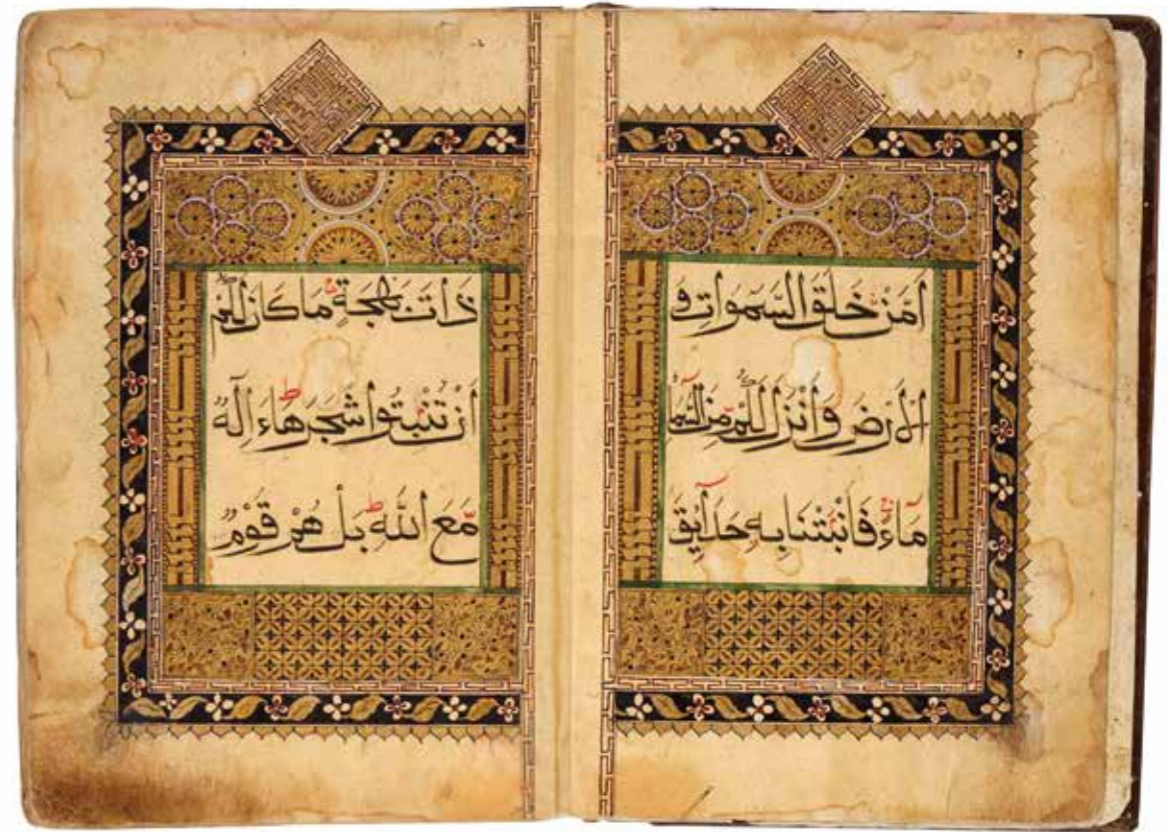 اَمَّنْ خَلَقَ السَّمٰوٰتِ وَ
الْاَرْضَ وَاَنْزَلَ لَكُمْ مِّنَ السَّمَآءِ
مَآءً فَاَنْۢبَتْنَا بِهٖ حَدَآئِقَ
ذَاتَ بَهْجَةٍ مَّا كَانَ لَكُمْ
اَنْ تُنْۢبِتُوْا شَجَرَهَا ط ءَاِلٰهٌ
مَّعَ اللّٰهِ ط بَلْ هُمْ قَوْمٌ